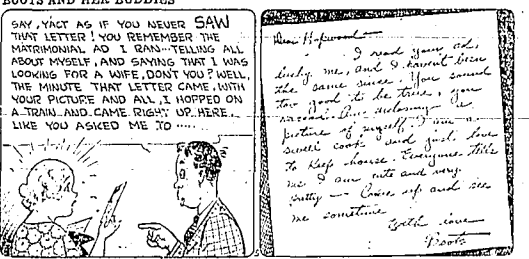 BOOTS AND HER BUDDIES
SAY, Y'ACT AS IF YOU NEVER SAW
THAT LETTER! YOU REMEMBER THE
MATRIMONIAL AD I RAN...TELLING ALL
ABOUT MYSELF, AND SAYING THAT I WAS
LOOKING FOR A WIFE, DON'T YOU? WELL,
THE MINUTE THAT LETTER CAME, WITH
YOUR PICTURE AND ALL, I HOPPED ON
A TRAIN AND CAME RIGHT UP HERE,
LIKE YOU ASKED ME TO .....
Dear
I read your ad,
lucky me, and I haven't been
the same since. You sound
too good to be true, you
Am enclosing a
picture of myself. I am a
swell cook and just love
to keep house. Everyone tells
me I am cute and very
pretty — Come up and see
me sometime
With love
Boots